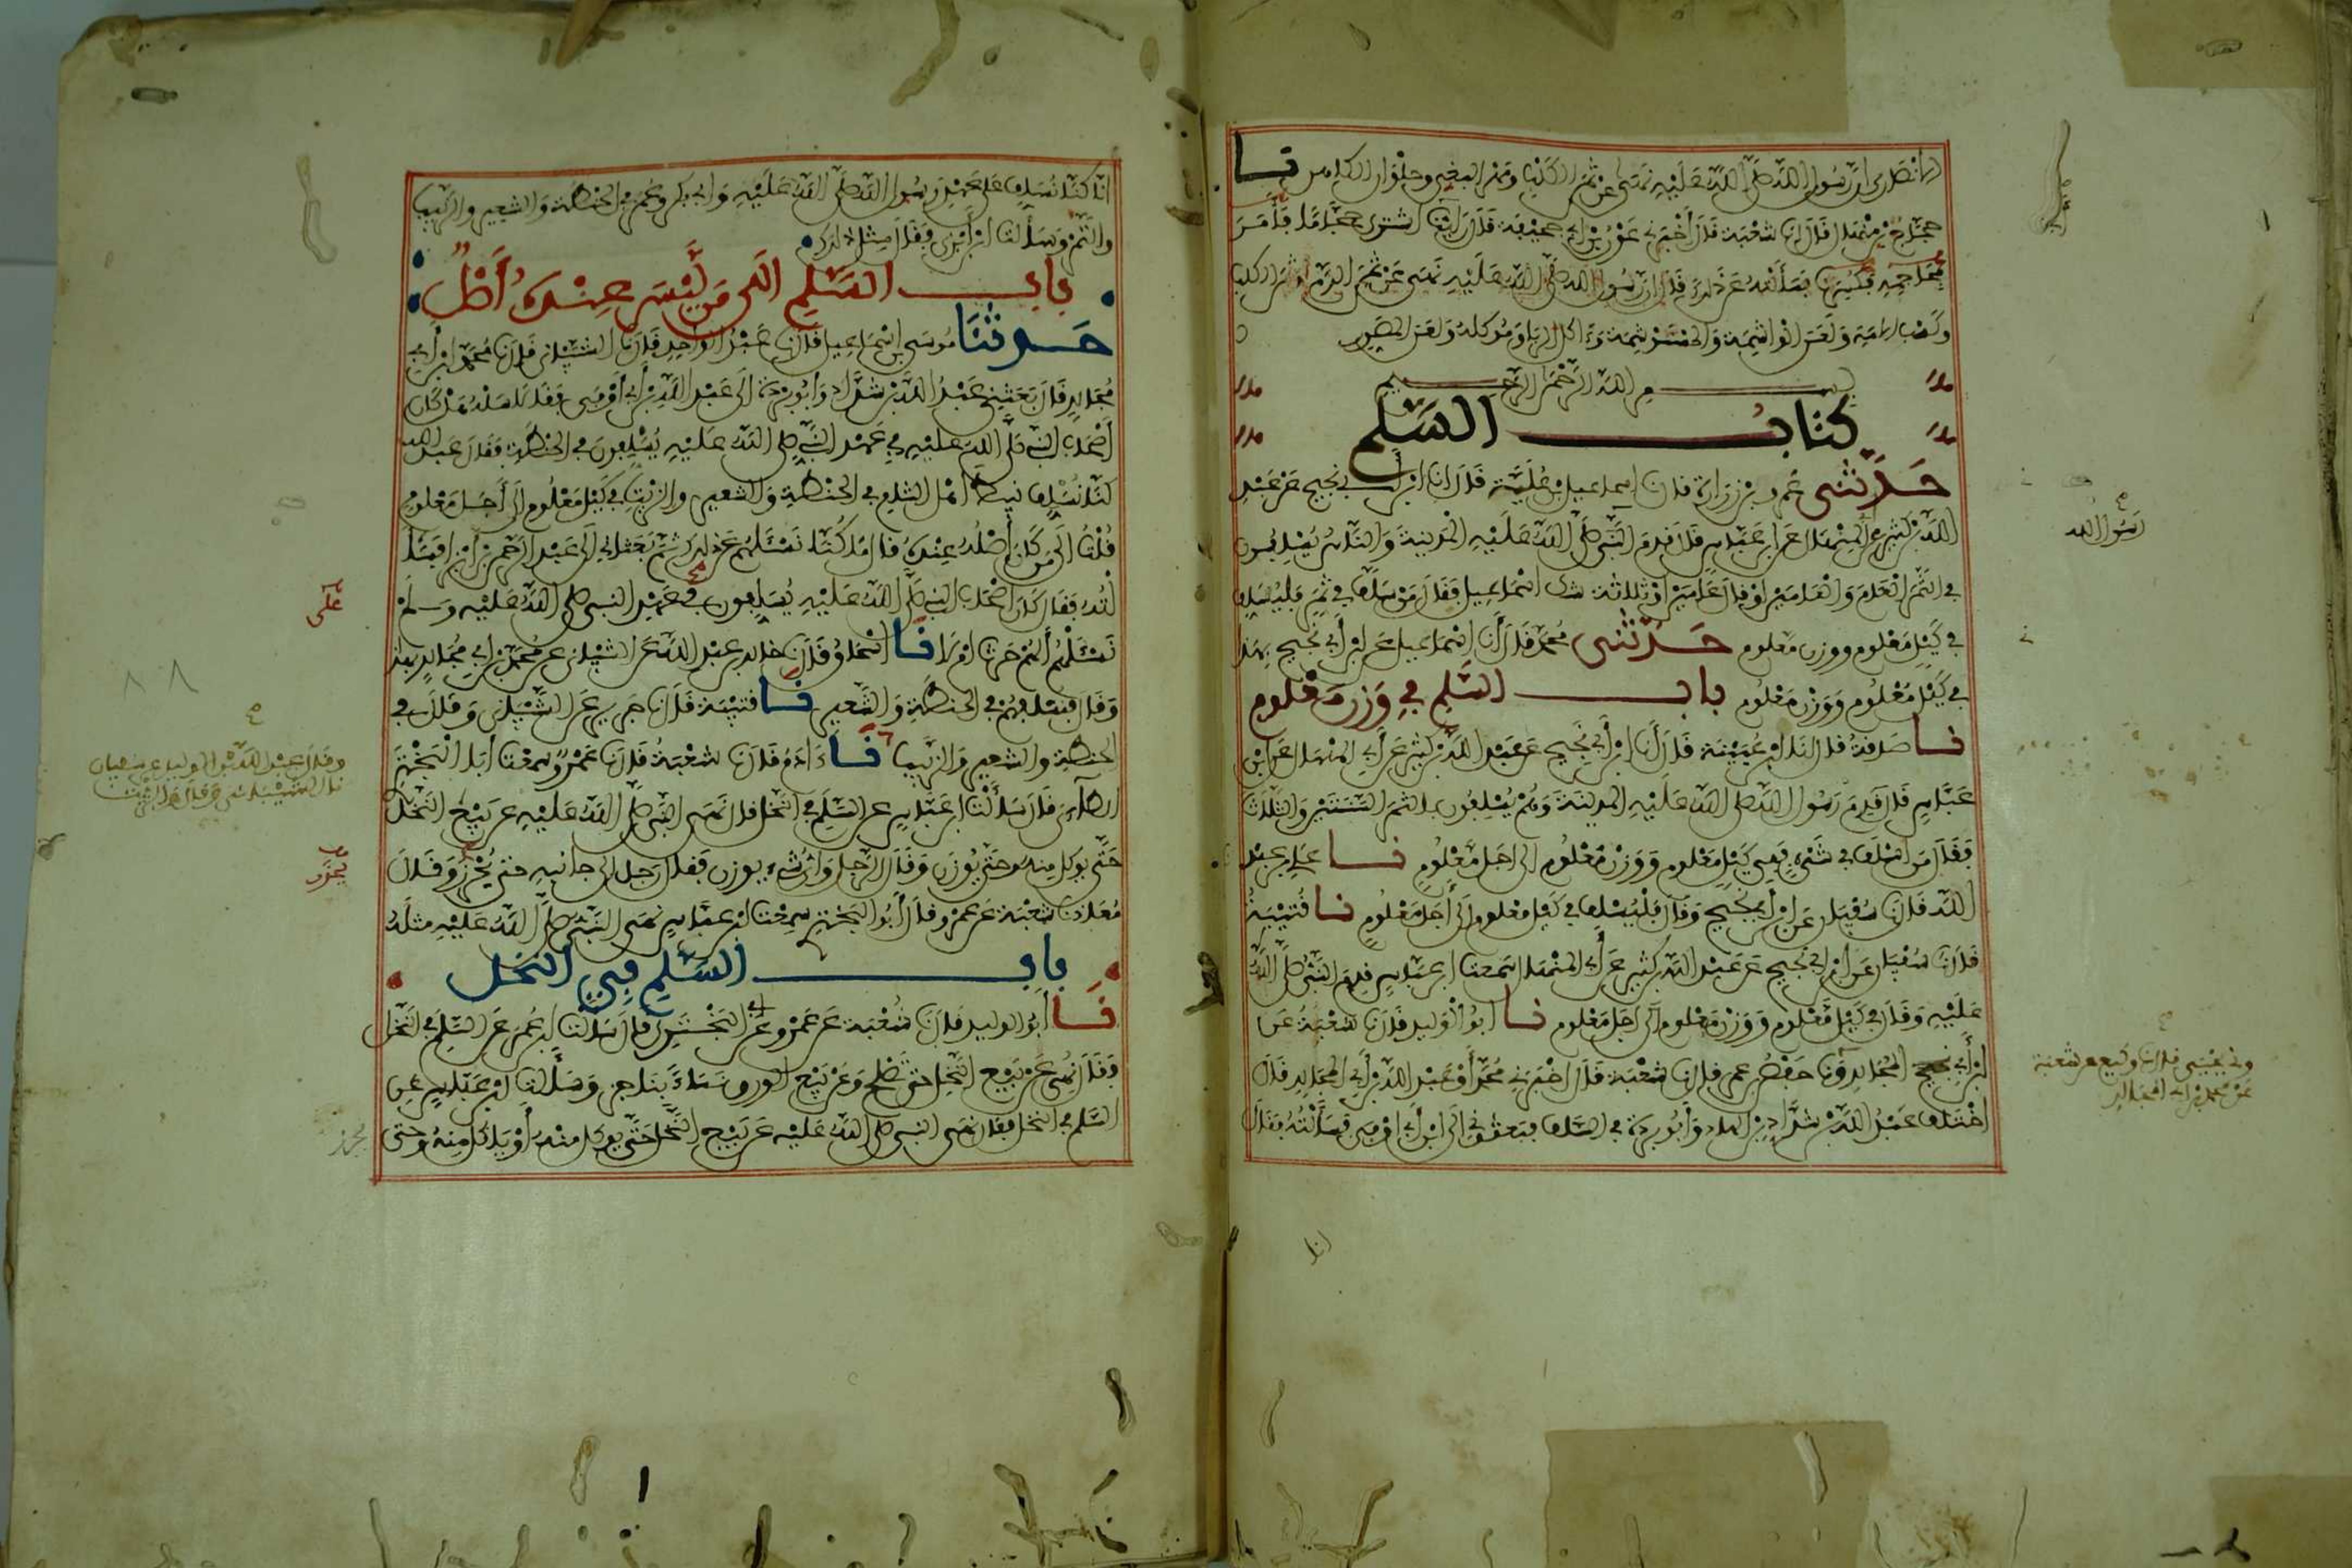 الانصاري ان رسول الله صلى الله عليه نهى عن ثمن الكلب ومهر البغي وحلوان الكاهن نا
حجاج بن منهال قال نا شعبة قال أخبرني عون بن ابي جحيفة قال رايت ابي اشترى حجاما فأمر
بمحاجمه فكسرت فسألته عن ذلك قال ان رسول الله صلى الله عليه نهى عن ثمن الدم وثمن الكلب
وكسب الامة ولعن الواشمة والمستوشمة وءاكل الربا وموكله ولعن المصور
بسم الله الرحمن الرحيم
كتاب السلم
حدثنى عمرو بن زرارة قال نا اسماعيل بن علية قال انا ابن ابي نجيح عن عبد
الله بن كثير عن ابي المنهال عن ابن عباس قال قدم النبي صلى الله عليه المدينة والناس يسلفون
في الثمر العام والعامين او قال عامين او ثلاثة شك اسماعيل فقال من سلف في ثمر فليسلف
في كيل معلوم ووزن معلوم حدثنى محمد قال أنا إسماعيل عن ابن أبي نجيح بهذا
في كيل معلوم ووزن معلوم باب السلم في وزن معلوم
نا صدقة قال انا ابن عيينة قال أنا ابن أبي نجيح عن عبد الله بن كثير عن أبي المنهال عن ابن
عباس قال قدم رسول الله صلى الله عليه المدينة وهم يسلفون بالثمر السنتين والثلاث
فقال من اسلف في شيء ففي كيل معلوم ووزن معلوم الى اجل معلوم نا علي بن عبد
الله قال نا سفيان عن ابن أبي نجيح وقال فليسلف في كيل معلوم إلى أجل معلوم نا قتيبة
قال نا سفيان عن ابن ابي نجيح عن عبد الله بن كثير عن أبي المنهال سمعت ابن عباس قدم النبي صلى الله
عليه وقال في كيل معلوم ووزن معلوم إلى اجل معلوم نا أبو الوليد قال نا شعبة عن
ابن أبي المجالد ونا حفص بن عمر قال نا شعبة قال اخبرني محمد أو عبد الله بن أبي المجالد قال
اختلف عبد الله بن شداد بن الهاد وأبو بردة في السلف فبعثوني إلى ابن أبي اوفى فسألته فقال
رسول الله
ونا يحيى قال نا وكيع عن شعبة
عن محمد بن ابي المجالد
انا
انا كنا نسلف على عهد رسول الله صلى الله عليه وابي بكر وعمر في الحنطة والشعير والزبيب
والتمر وسألت ابن أبزى فقال مثل ذلك
باب السلم الى من ليس عنده أصل
حدثنا موسى بن اسماعيل قال نا عبد الواحد قال نا الشيباني قال نا محمد بن أبي
مجالد قال بعثني عبد الله بن شداد وأبو بردة الى عبد الله بن أبي أوفى فقالا سله هل كان
أصحاب النبي صلى الله عليه في عهد النبي صلى الله عليه يسلفون في الحنطة فقال عبد الله
كنا نسلف نبيط أهل الشام في الحنطة والشعير والزيت في كيل معلوم إلى أجل معلوم
قلت إلى من كان أصله عنده قال ما كنا نسئلهم عن ذلك ثم بعثاني إلى عبد الرحمن بن ابزى فسئلـ
ـته فقال كان اصحاب النبي صلى الله عليه يسلفون في عهد النبي صلى الله عليه وسلم
نسئلهم ألهم حرث ام لا نا اسحاق قال نا خالد بن عبد الله عن الشيباني عن محمد بن ابي مجالد بهذا
وقال فنسلفهم في الحنطة والشعير نا قتيبة قال نا جرير عن الشيباني وقال في
الحنطة والشعير والزبيب نا ءادم قال نا شعبة قال نا عمرو سمعت أبا البختري
الطاءي قال سألت ابن عباس عن السلم في النخل قال نهى النبي صلى الله عليه عن بيع النخل
حتى يوكل منه وحتى يوزن وقال الرجل واي شيء يوزن فقال رجل الى جانبه حتى يحرز وقال
معاذ نا شعبة عن عمرو قال أبو البختري سمعت ابن عباس نهى النبي صلى الله عليه مثله
باب السلم في النخل
نا أبو الوليد قال نا شعبة عن عمرو عن أبي البختري قال سألت ابن عمر عن السلم في النخل
فقال نهي عن بيع النخل حتى تصلح وعن بيع الورق نساء بناجز وسألت ابن عباس عن
السلم في النخل فقال نهى النبي صلى الله عليه عن بيع النخل حتى يوكل منه أو ياكل منه وحتى
على
٨٨
وقال عبد الله بن الوليد عن سفيان
نا الشيباني وقال والزيت
يحزر
يحرز